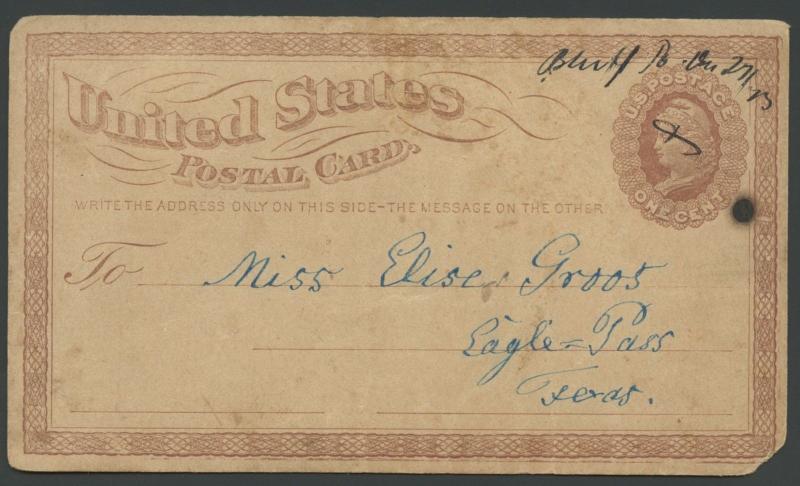 Bluff
27/73
U.S. POSTAGE
ONE CENT
United States
POSTAL CARD.
WRITE THE ADDRESS ONLY ON THIS SIDE–THE MESSAGE ON THE OTHER
To Miss Elise Groos
Eagle=Pass
Texas.